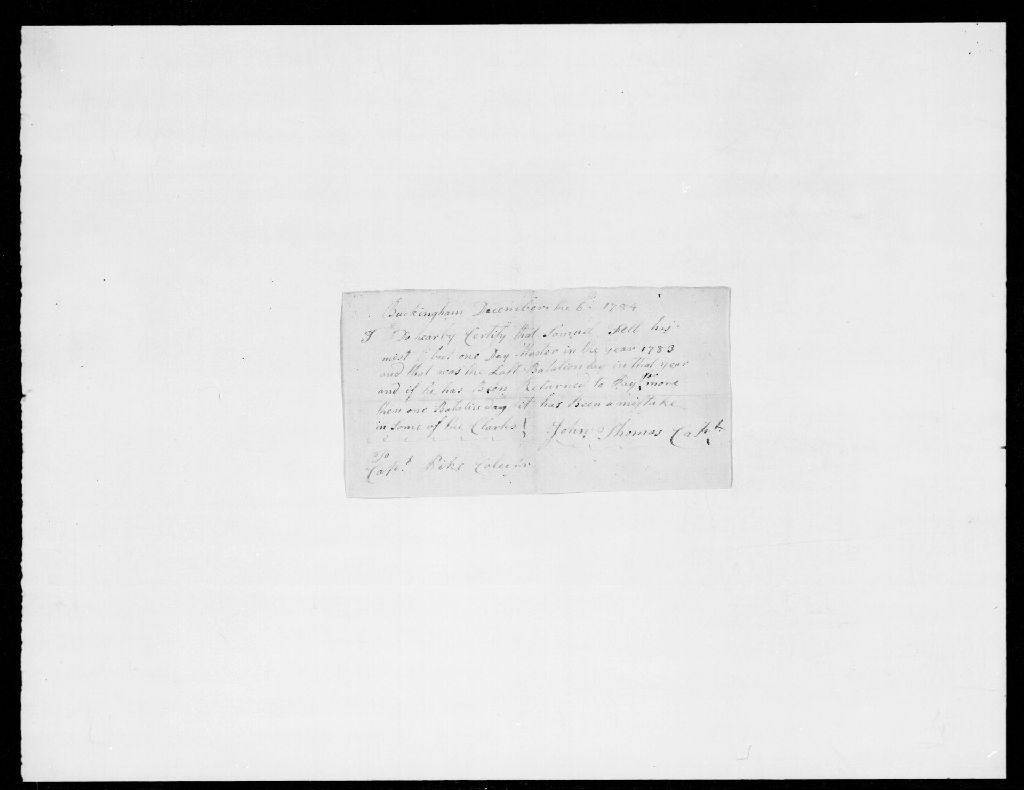 Buckingham December the 6th 1784
I Do hearby Certify that Samuel Nell has
mist but one Day Muster in the year 1783
and that was the Last Batalion day in that year
and if he has Been Returned to Pay more
then one Batalin day it has Been a mistake
in some of the Clarks John Thomas Capt
To
Capt Rike Colector